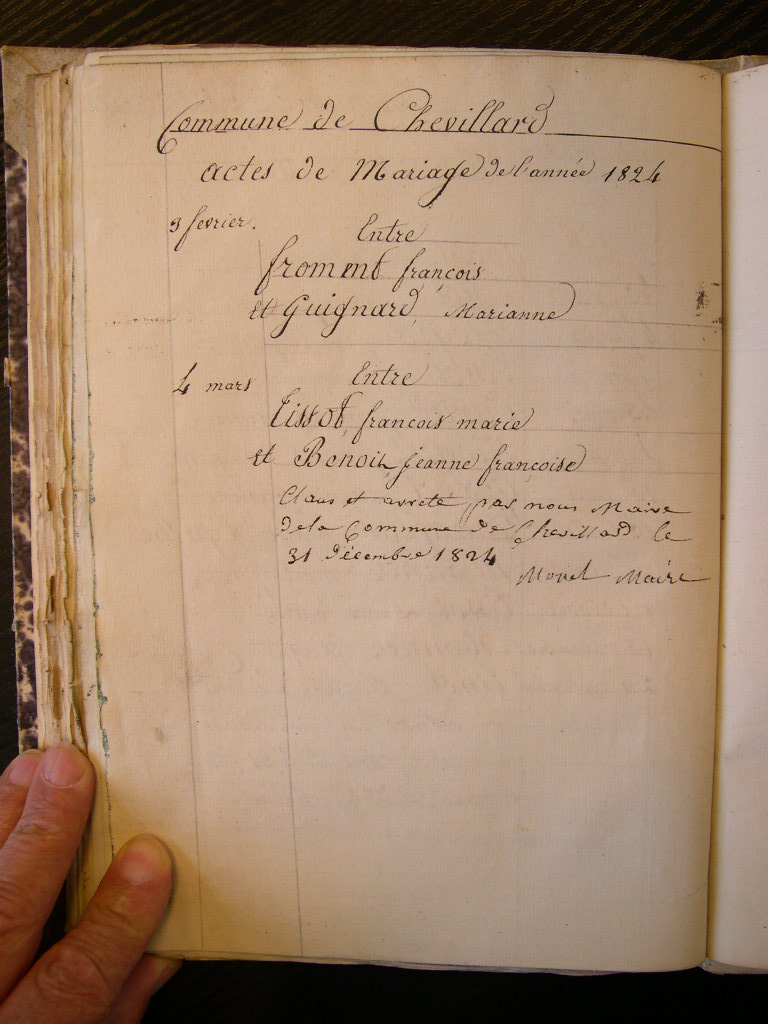 Commune de Chevillard
actes de Mariage de l'année 1824
9 fevrier. Entre
froment françois
et Guignard, Marianne
4 mars Entre
tissot, francois marie
et Benoit, jeanne françoise
Claus et arreté, par nous Maire
dela Commune de Chevillard le
31 décembre 1824
Maire